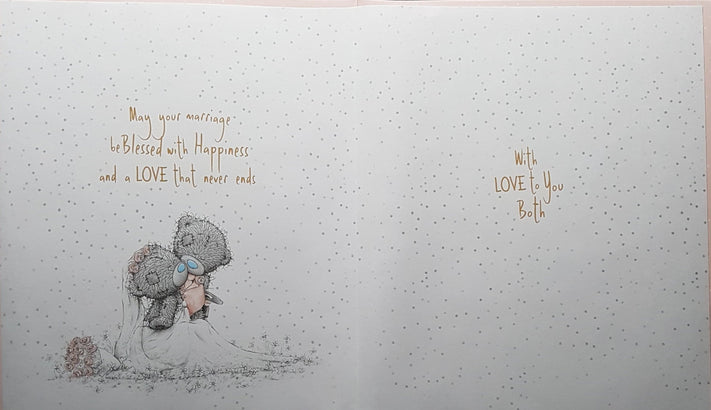 May your marriage
be Blessed with Happiness
and a LOVE that never ends
With
LOVE to You
Both